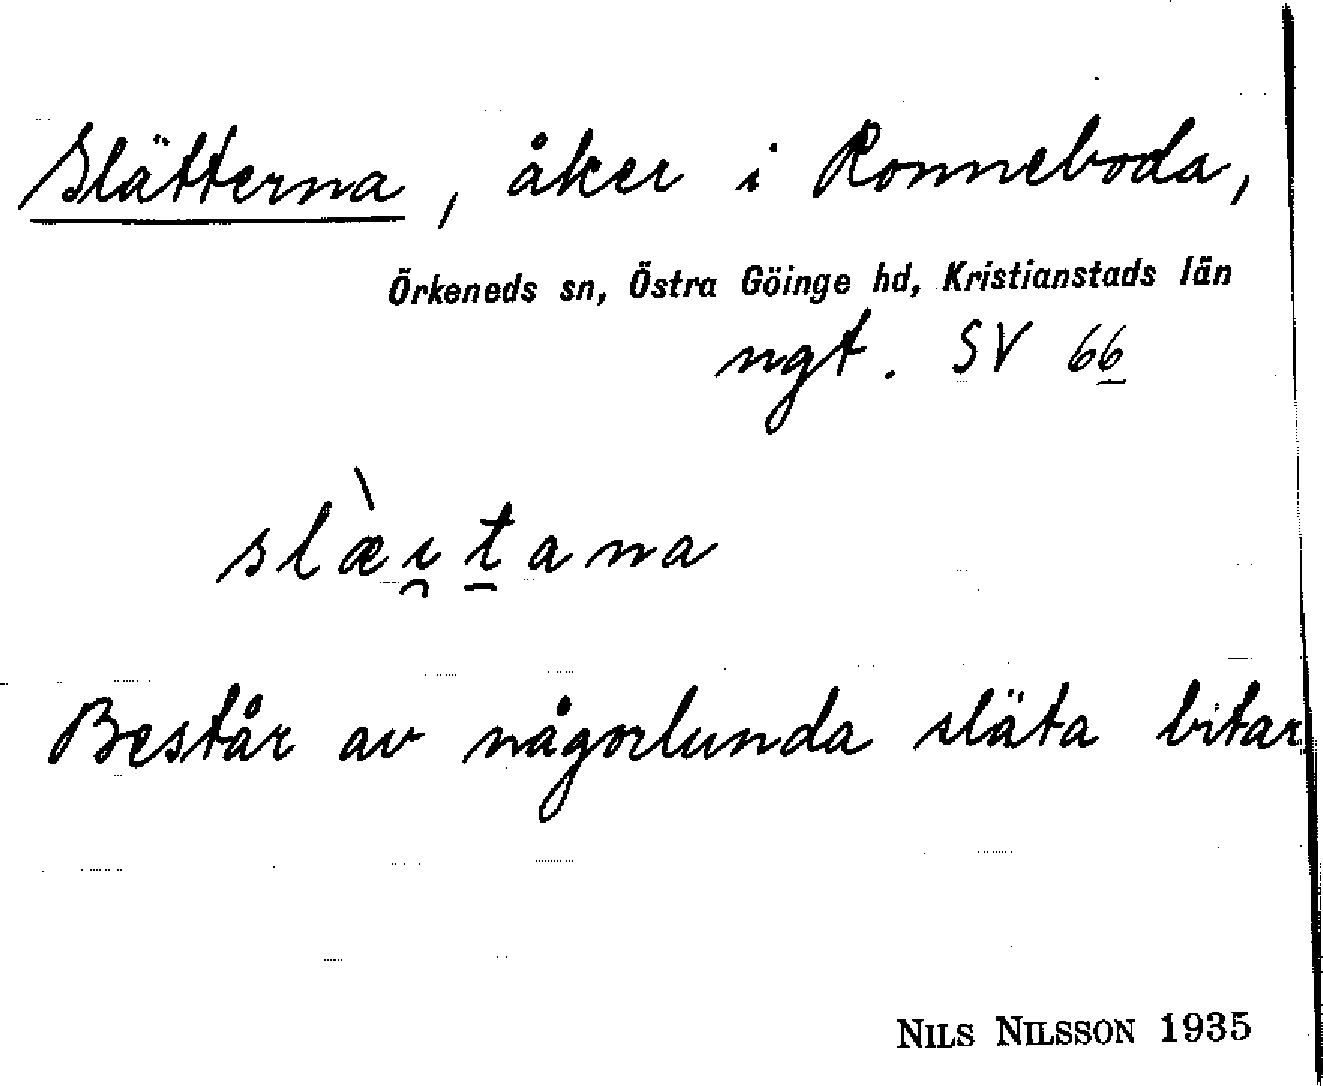 Slätterna, åker i Ronneboda,
Örkeneds sn, Östra Göinge hd, Kristianstads län
ngt. SV 66
slæ̀ı̯ṯana
Består av någorlunda släta bitar
NILS NILSSON 1935